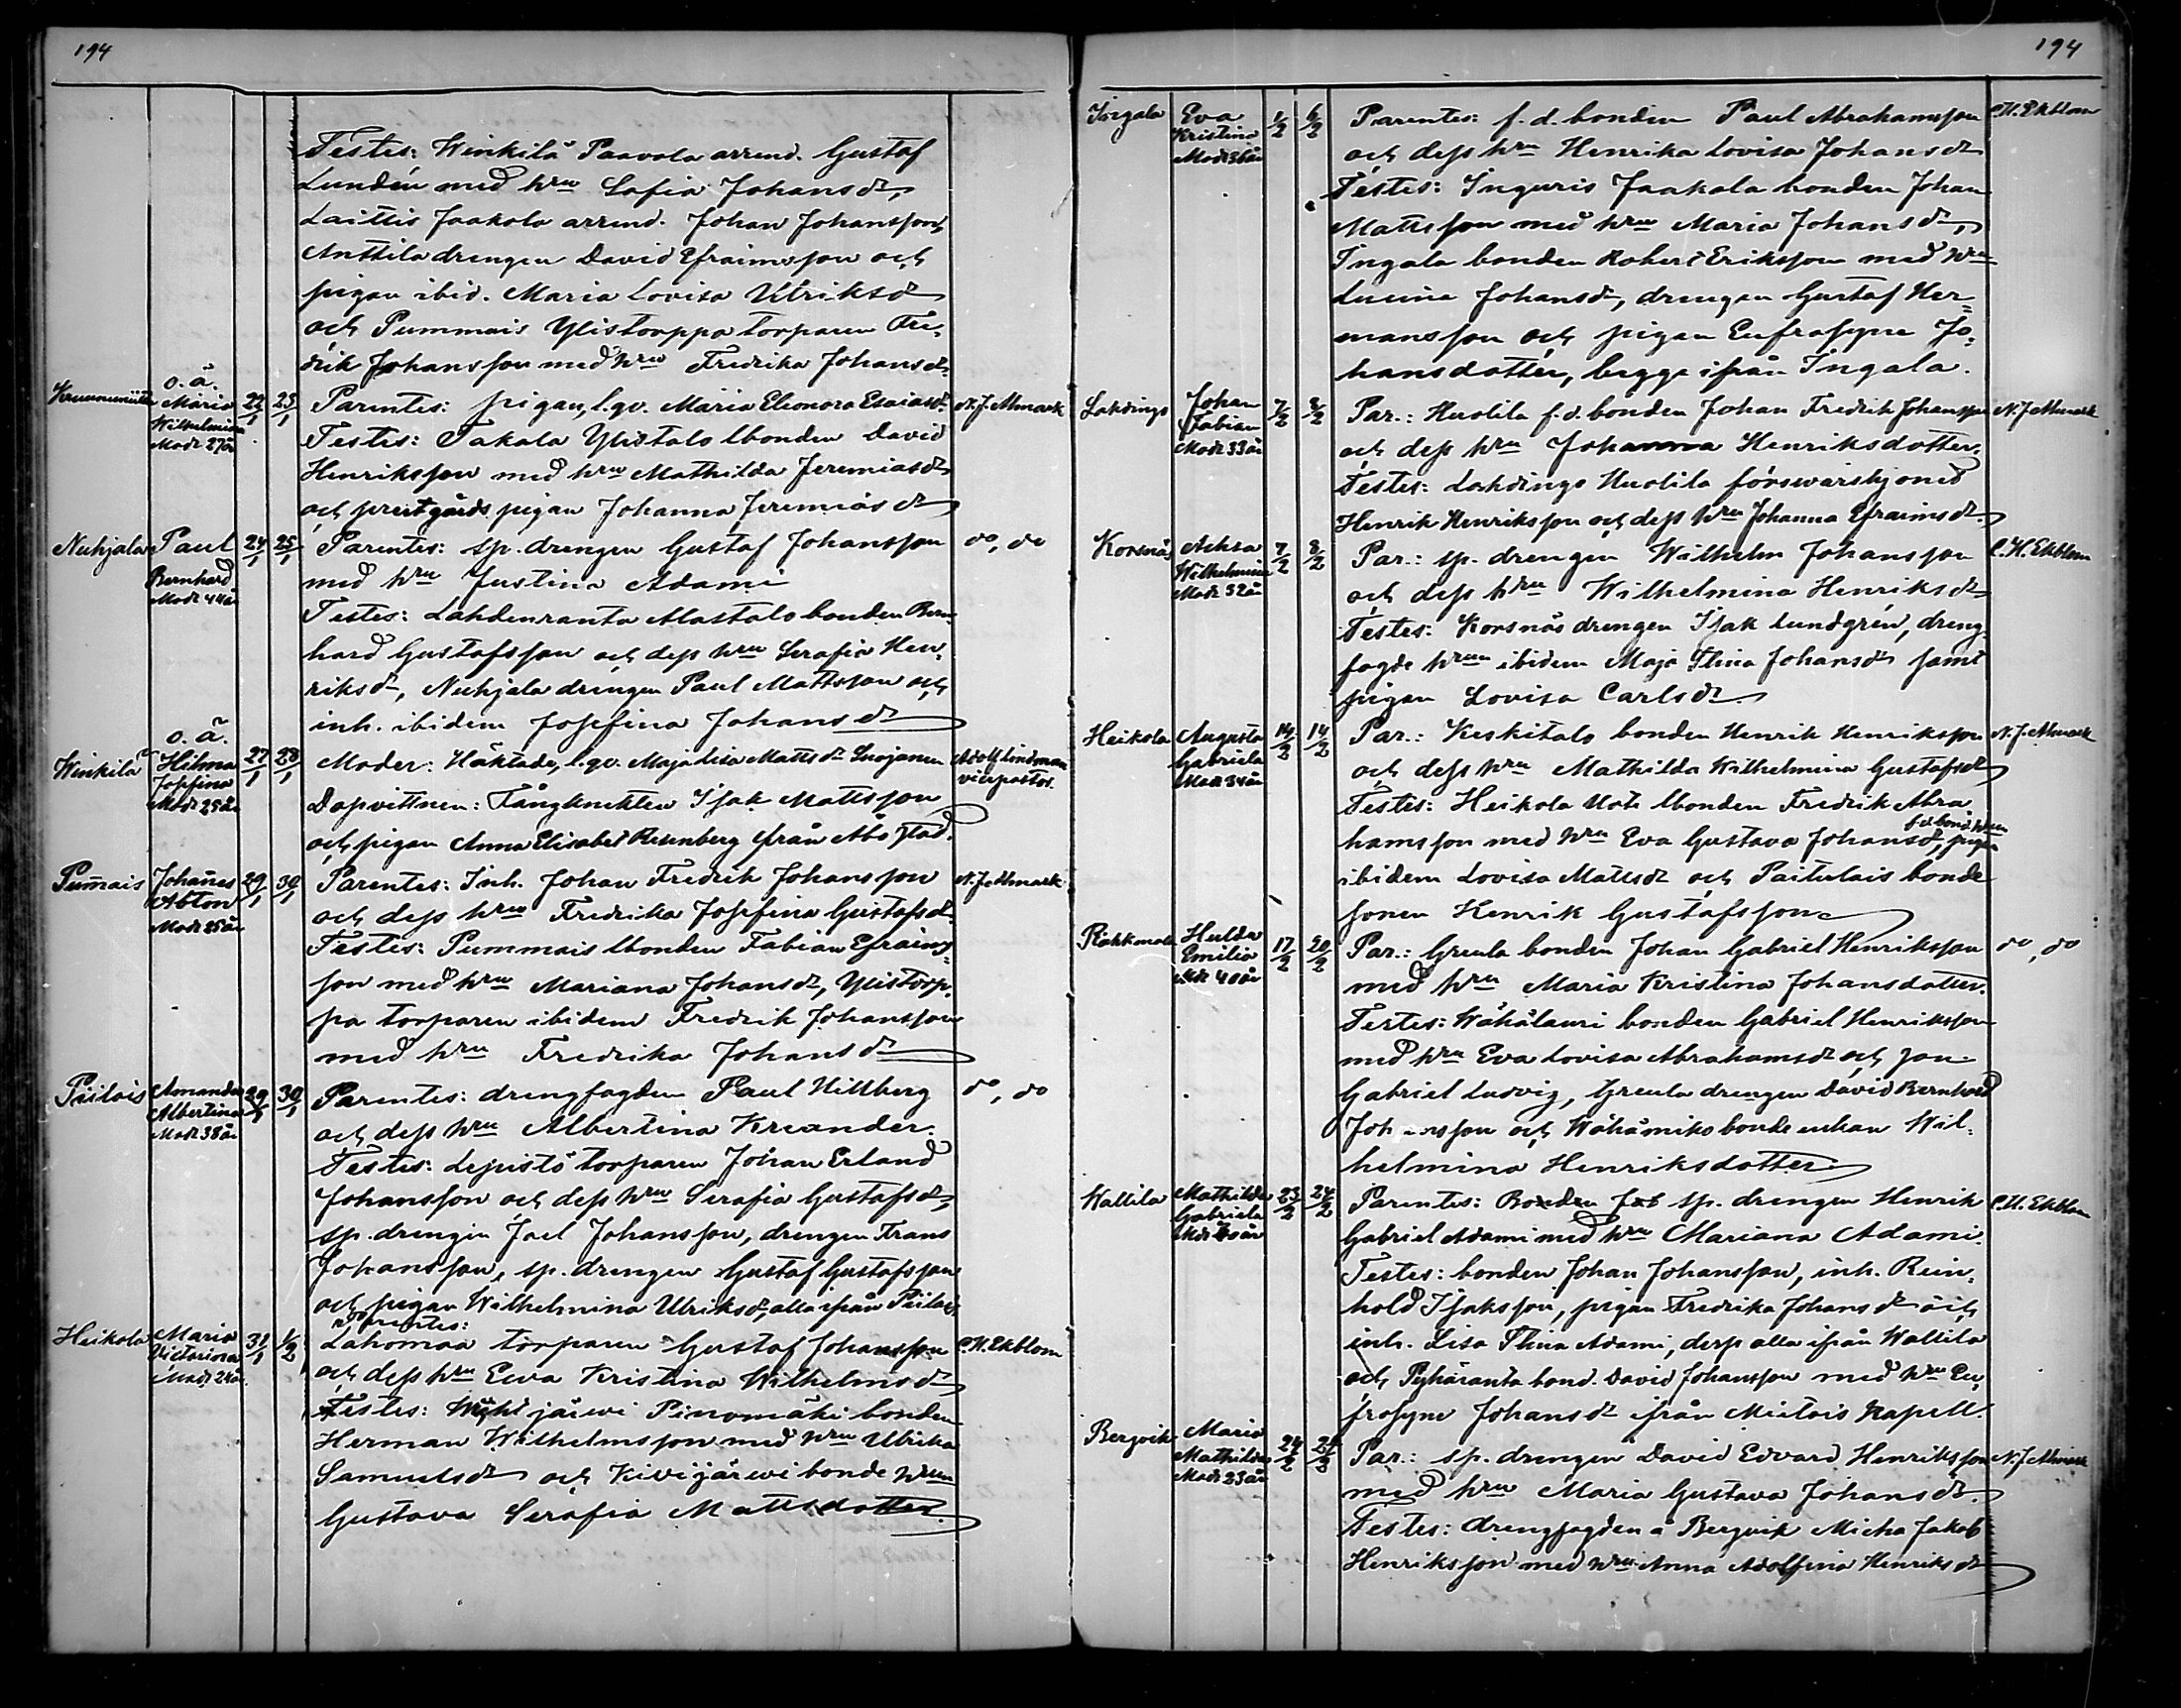 194
Testes: Winkilä Paavola arrend. Gustaf
Lundén med hru Sofia Johansdr,
Laittis Jaakola arrend. Johan Johansson,
Anttila drengen David Efraimsson och
pigan ibid. Maria Lovisa Ulriksdr
och Pummais Ylistorppa torparen Fre-
drik Johansson med hru Fredrika Johansdr.
o.ä.
Maria
Wilhelmina
Modr 27 år
22/1 23/1
Parentes: pigan, l.qv. Maria Eleonora Esaiasdr
Testes: Takala Ylistalo lbonden David
Henriksson med hru Mathilda Jeremiasdr
och prestgårds pigan Johanna Jeremiasdr
Nuhjala Paul
Bernhard
Modr 44 år
24/1 25/1
Parentes: sp. drengen Gustaf Johansson
med hru Justina Adami
do, do
Testes: Lahdenranta Alastalo bonden Bern-
hard Gustafsson och dess hru Serafia Hen-
riksdr, Nuhjala drengen Paul Mattsson och
inh. ibidem Josefina Johansdr
Winkilä
o.ä.
Hilma
Josefina
Modr 25 år
27/1 28/1
Moder: Häktade, l.qv. Maja Lisa Mattsdr Suojanen
Adolf Lindman
vicepastor.
Dopvittnen: Fångknekten Isak Mattsson
och pigan Anna Elisabet Rosenberg från Åbo stad.
Pummais Johannes
Anton
Modr 25 år
29/1 30/1
Parentes: Inh. Johan Fredrik Johansson
N. J. Ahmark
och dess hru Fredrika Josefina Gustafsdr.
Testes: Pummais lbonden Fabian Efraims-
son med hru Mariana Johansdr, Ylistorp-
pa torparen ibidem Fredrik Johansson
med hru Fredrika Johansdr
Piilois Amanda
Albertina
Modr 38 år
29/1 30/1
Parentes: drengfogden Paul Hillberg
do, do
och dess hru Albertina Kreander.
Testes: Lepistö torparen Johan Erland
Johansson och dess hru Serafia Gustafsdr,
sp. drengen Joel Johansson, drengen Frans
Johansson, sp. drengen Gustaf Gustafsson
och pigan Wilhelmina Ulriksdr, alla ifrån Piilois
Parentes:
Heikola Maria
Victorina
Modr 24 år
31/1 1/2
Lahomaa torparen Gustaf Johansson
C. H. Ekblom
och dess hru Eva Kristina Wilhelmsdr
Testes: järwi Pinomäki bonden
Herman Wilhelmsson med hru Ulrika
Samuelsdr och Kivijärwi bonde hrun
Gustava Serafia Mattsdotter.
194
Ingala Eva
Kristina
Modr 36 år
1/2 6/2
Parentes: f.d. bonden Paul Abrahamsson
C. H. Ekblom
och dess hru Henrika Lovisa Johansdr
Testes: Inguris Jaakola bonden Johan
Mattsson med hru Maria Johansdr,
Ingala bonden Robert Eriksson med hru
Lucina Johansdr, drengen Gustaf Her-
mansson och pigan Eufrosyne Jo-
hansdotter, begge ifrån Ingala.
Lahdings Johan
Fabian
Modr 33 år
7/2 8/2
Par.: Huolila f.d. bonden Johan Fredrik Johansson
N. J. Ahmark
och dess hru Johanna Henriksdotter.
Testes: Lahdings Huolila försvarshjoned
Henrik Henriksson och dess hru Johanna Efraimsdr.
Korsnäs
Wilhelmina
Modr 32 år
7/2 8/2
Par.: sp. drengen Wilhelm Johansson
C. H. Ekblom
och dess hru Wilhelmina Henriksdr
Testes: Korsnäs drengen Isak Lundgrén, dreng-
fogde hrun ibidem Maja Stina Johansdr samt
pigan Lovisa Carlsdr
Heikola Augusta
Gabriela
Modr 34 år
14/2 14/2
Par.: Keskitalo bonden Henrik Henriksson
N. J. Ahmark
och dess hru Mathilda Wilhelmina Gustafsdr
Testes: Heikola Uoti lbonden Fredrik Abra-
hamsson med hru Eva Gustava Johansdr,
ibidem Lovisa Mattsdr och Paitulais bonde
sonen Henrik Gustafsson
Hulda
Emilia
Modr 40 år
17/2 20/2
Par.: Greula bonden Johan Gabriel Henriksson
do, do
med hru Maria Kristina Johansdotter.
Testes: Wähälauri bonden Gabriel Henriksson
med hru Eva Lovisa Abrahamsdr och son
Gabriel Ludvig, Greula drengen David Bernhard
Johansson och Wähämiko bonde enkan Wil-
helmina Henriksdotter
Wallila Mathilda
Gabriela
23/2 24/2
Parentes: sp. drengen Henrik
C. H. Ekblom
Gabriel Adami med hru Mariana Adami.
Testes: bonden Johan Johansson, inh. Rein-
hold Isaksson, pigan Fredrika Johansdr och
inh. Lisa Stina Adami, desse alla ifrån Wallila
och Pyhäranta bond. David Johansson med hru Eu-
frosyne Johansdr ifrån Mietois Kapell.
Bergvik Maria
Mathilda
Modr 23 år
Par.: sp. drengen David Edvard Henriksson
N. J. Ahmark
med hru Maria Gustava Johansdr.
Testes: drengfogden å Bergvik Micha Jakob
Henriksson med hru Anna Adolfina Henriksdr